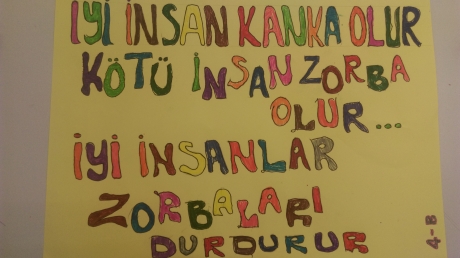 İYİ İNSAN KANKA OLUR
KÖTÜ İNSAN ZORBA
OLUR...
İYİ İNSANLAR
ZORBALARI
DURDURUR
4-B